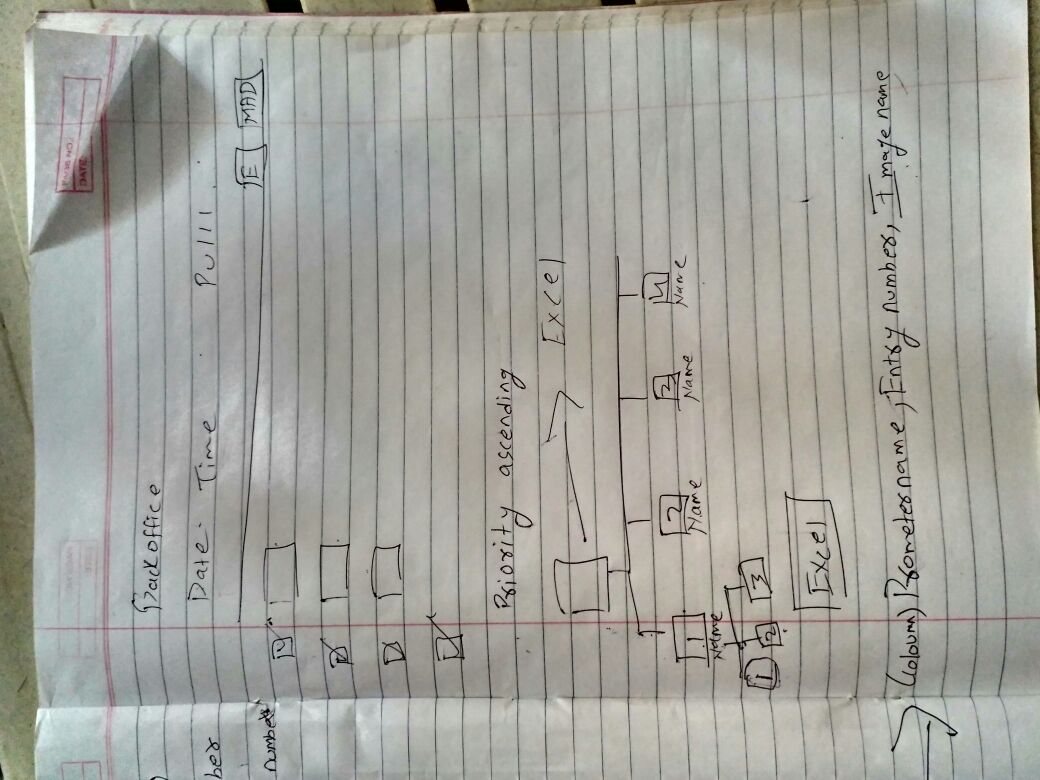 PAGE NO.:
DATE:
Backoffice
Date. Time Pulll
ber
number
E MAD
Priority ascending
Excel
1 2 3 4
Name Name Name Name
1 2 3
Excel
(Coloumn) Prometer name, Entry number, Image name